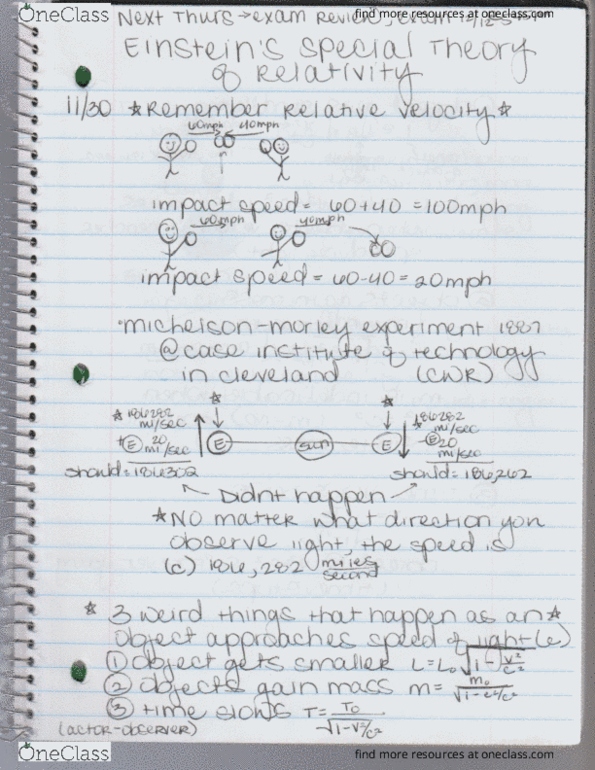 OneClass
find more resources at oneclass.com
Next Thurs → exam Review, exam 12/12
Einstein's Special Theory
of Relativity
11/30 ☆Remember Relative Velocity☆
60mph 40mph
impact speed = 60+40 = 100mph
60mph 40mph
impact speed = 60-40 = 20mph
·michelson-morley experiment 1887
@case institute of technology
in cleveland (CWR)
☆ 186282 mi/sec
+ E 20 mi/sec
should = 186302
E sun E
☆186282 mi/sec
- E 20 mi/sec
should = 186,262
Didnt happen
☆No matter what direction you
observe light, the speed is
(c) 186,282 miles/second
☆ 3 weird things that happen as an☆
object approaches speed of light (c)
① object gets smaller L=L₀√1-v²/c²
② objects gain mass m= m₀/√1-c²/c²
③ time slows T= T₀/√1-v²/c²
(actor-observer)
OneClass
find more resources at oneclass.com